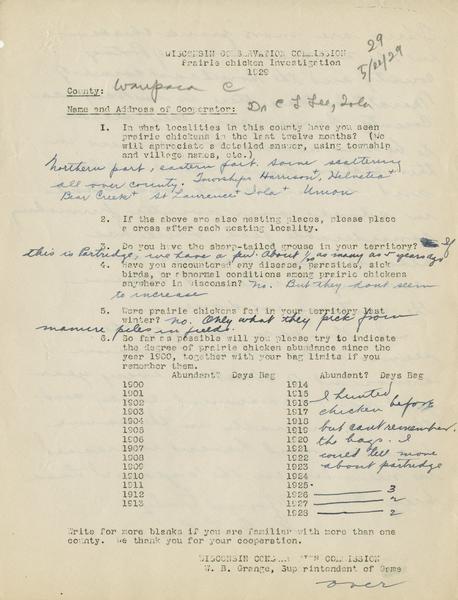 29
5/22/29
WISCONSIN CONSERVATION COMMISSION
Prairie chicken Investigation
1929
County: Waupaca C
Name and Address of Cooperator: Dr C L Lee, Iola
1. In what localities in this county have you seen
prairie chickens in the last twelve months? (We
will appreciate a detailed answer, using township
and village names, etc.)
Northern part, eastern part. Some scattering
all over county. Townships Harrison+, Helvetia+
Bear Creek+ St Laurence+ Iola+ Union
2. If the above are also nesting places, please place
a cross after each nesting locality.
3. Do you have the sharp-tailed grouse in your territory? If
this is Partridge, we have a few. About 1/10 as many as 5 years ago
4. Have you encountered any disease, parasites, sick
birds, or abnormal conditions among prairie chickens
anywhere in Wisconsin? No. But they dont seem
to increase
5. Were prairie chickens fed in your territory last
winter? No. Only what they pick from
manure piles in fields.
6. So far as possible will you please try to indicate
the degree of prairie chicken abundance since the
year 1900, together with your bag limits if you
remember them.
Abundant? Days Bag Abundant? Days Bag
1900 1914
1901 1915
1902 1916 I hunted
1903 1917 chicken before
1904 1918
1905 1919 but cant remember
1906 1920 the bags. I
1907 1921
1908 1922 could tell more
1909 1923 about partridge
1910 1924
1911 1925
1912 1926 3
1913 1927 2
1928 2
Write for more blanks if you are familiar with more than one
county. We thank you for your cooperation.
WISCONSIN CONSERVATION COMMISSION
W. B. Grange, Superintendent of Game
over